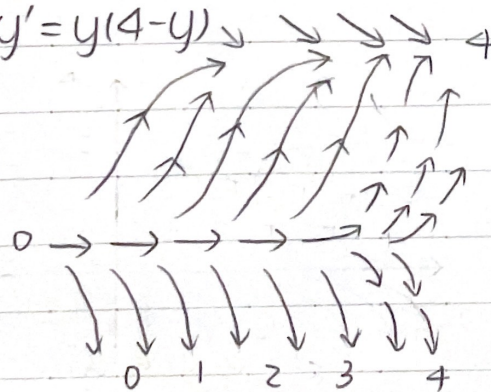 y' = y(4-y)
4
0
0 1 2 3 4